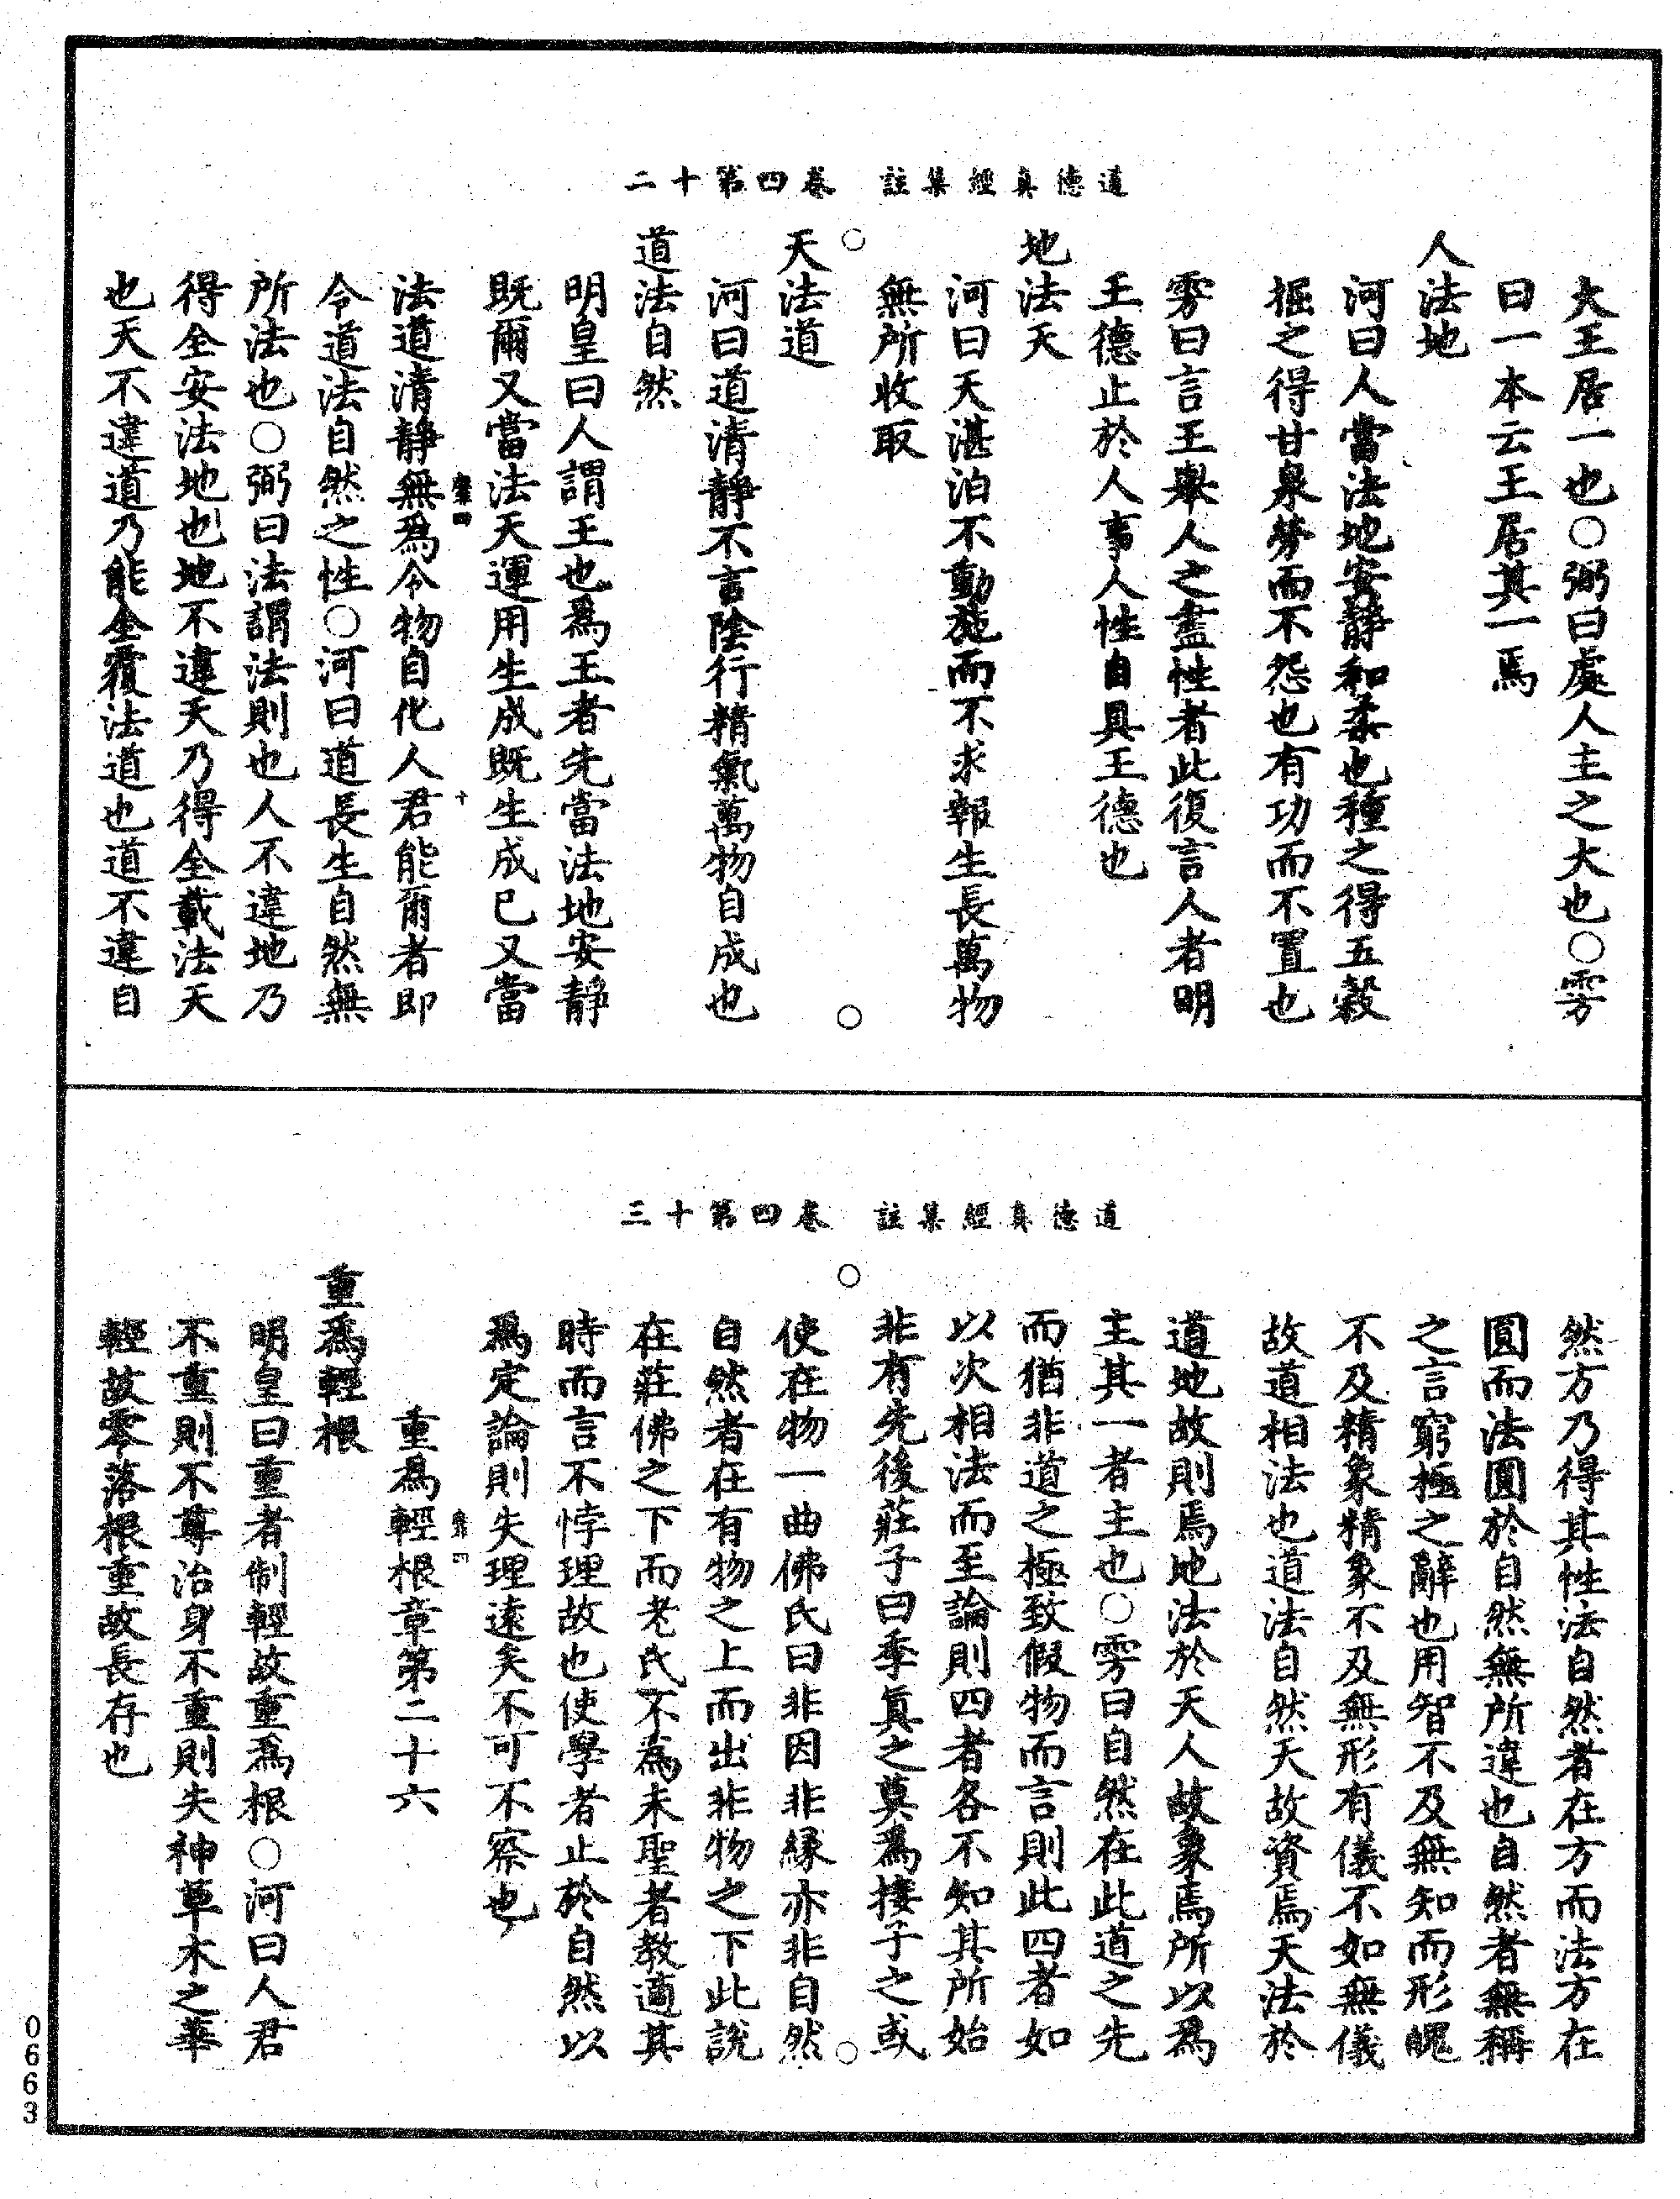 道德真經集註　卷四第十二
大王居一也○弼曰處人主之大也○雱
曰一本云王居其一焉
人法地
河曰人當法地安靜和柔也種之得五穀
掘之得甘泉勞而不怨也有功而不置也
雱曰言王舉人之盡性者此復言人者明
王德止於人事人性自具王德也
地法天
河曰天湛泊不動施而不求報生長萬物
無所收取
天法道
河曰道清靜不言陰行精氣萬物自成也
道法自然
明皇曰人謂王也爲王者先當法地安靜
既爾又當法天運用生成既生成已又當
法道清靜無爲令物自化人君能爾者即
令道法自然之性○河曰道長生自然無
所法也○弼曰法謂法則也人不違地乃
得全安法地也地不違天乃得全載法天
也天不違道乃能全覆法道也道不違自
道德真經集註　卷四第十三
然方乃得其性法自然者在方而法方在
圓而法圓於自然無所違也自然者無稱
之言窮極之辭也用智不及無知而形魄
不及精象精象不及無形有儀不如無儀
故道相法也道法自然天故資焉天法於
道地故則焉地法於天人故象焉所以爲
主其一者主也○雱曰自然在此道之先
而猶非道之極致假物而言則此四者如
以次相法而至論則四者各不知其所始
非有先後莊子曰季真之莫爲接子之或
使在物一曲佛氏曰非因非緣亦非自然
自然者在有物之上而出非物之下此說
在莊佛之下而老氏不為未聖者教適其
時而言不悖理故也使學者止於自然以
爲定論則失理遠矣不可不察也
重爲輕根章第二十六
重爲輕根
明皇曰重者制輕故重爲根○河曰人君
不重則不尊治身不重則失神草木之華
輕故零落根重故長存也
0663